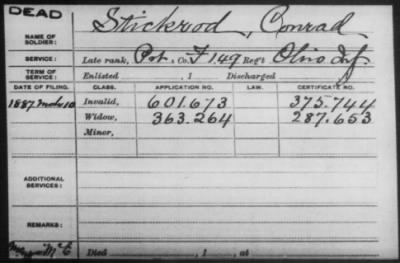 DEAD
NAME OF SOLDIER: Stickrod, Conrad
SERVICE: Late rank, Pvt., Co. F 149 Reg't Ohio Inf
TERM OF SERVICE: Enlisted , 1 Discharged
DATE OF FILING. CLASS. APPLICATION NO. LAW. CERTIFICATE NO.
1887 Mch 10 Invalid, 601.673 375.744
Widow, 363.264 287.653
Minor,
ADDITIONAL SERVICES:
REMARKS:
Died , 1 , at